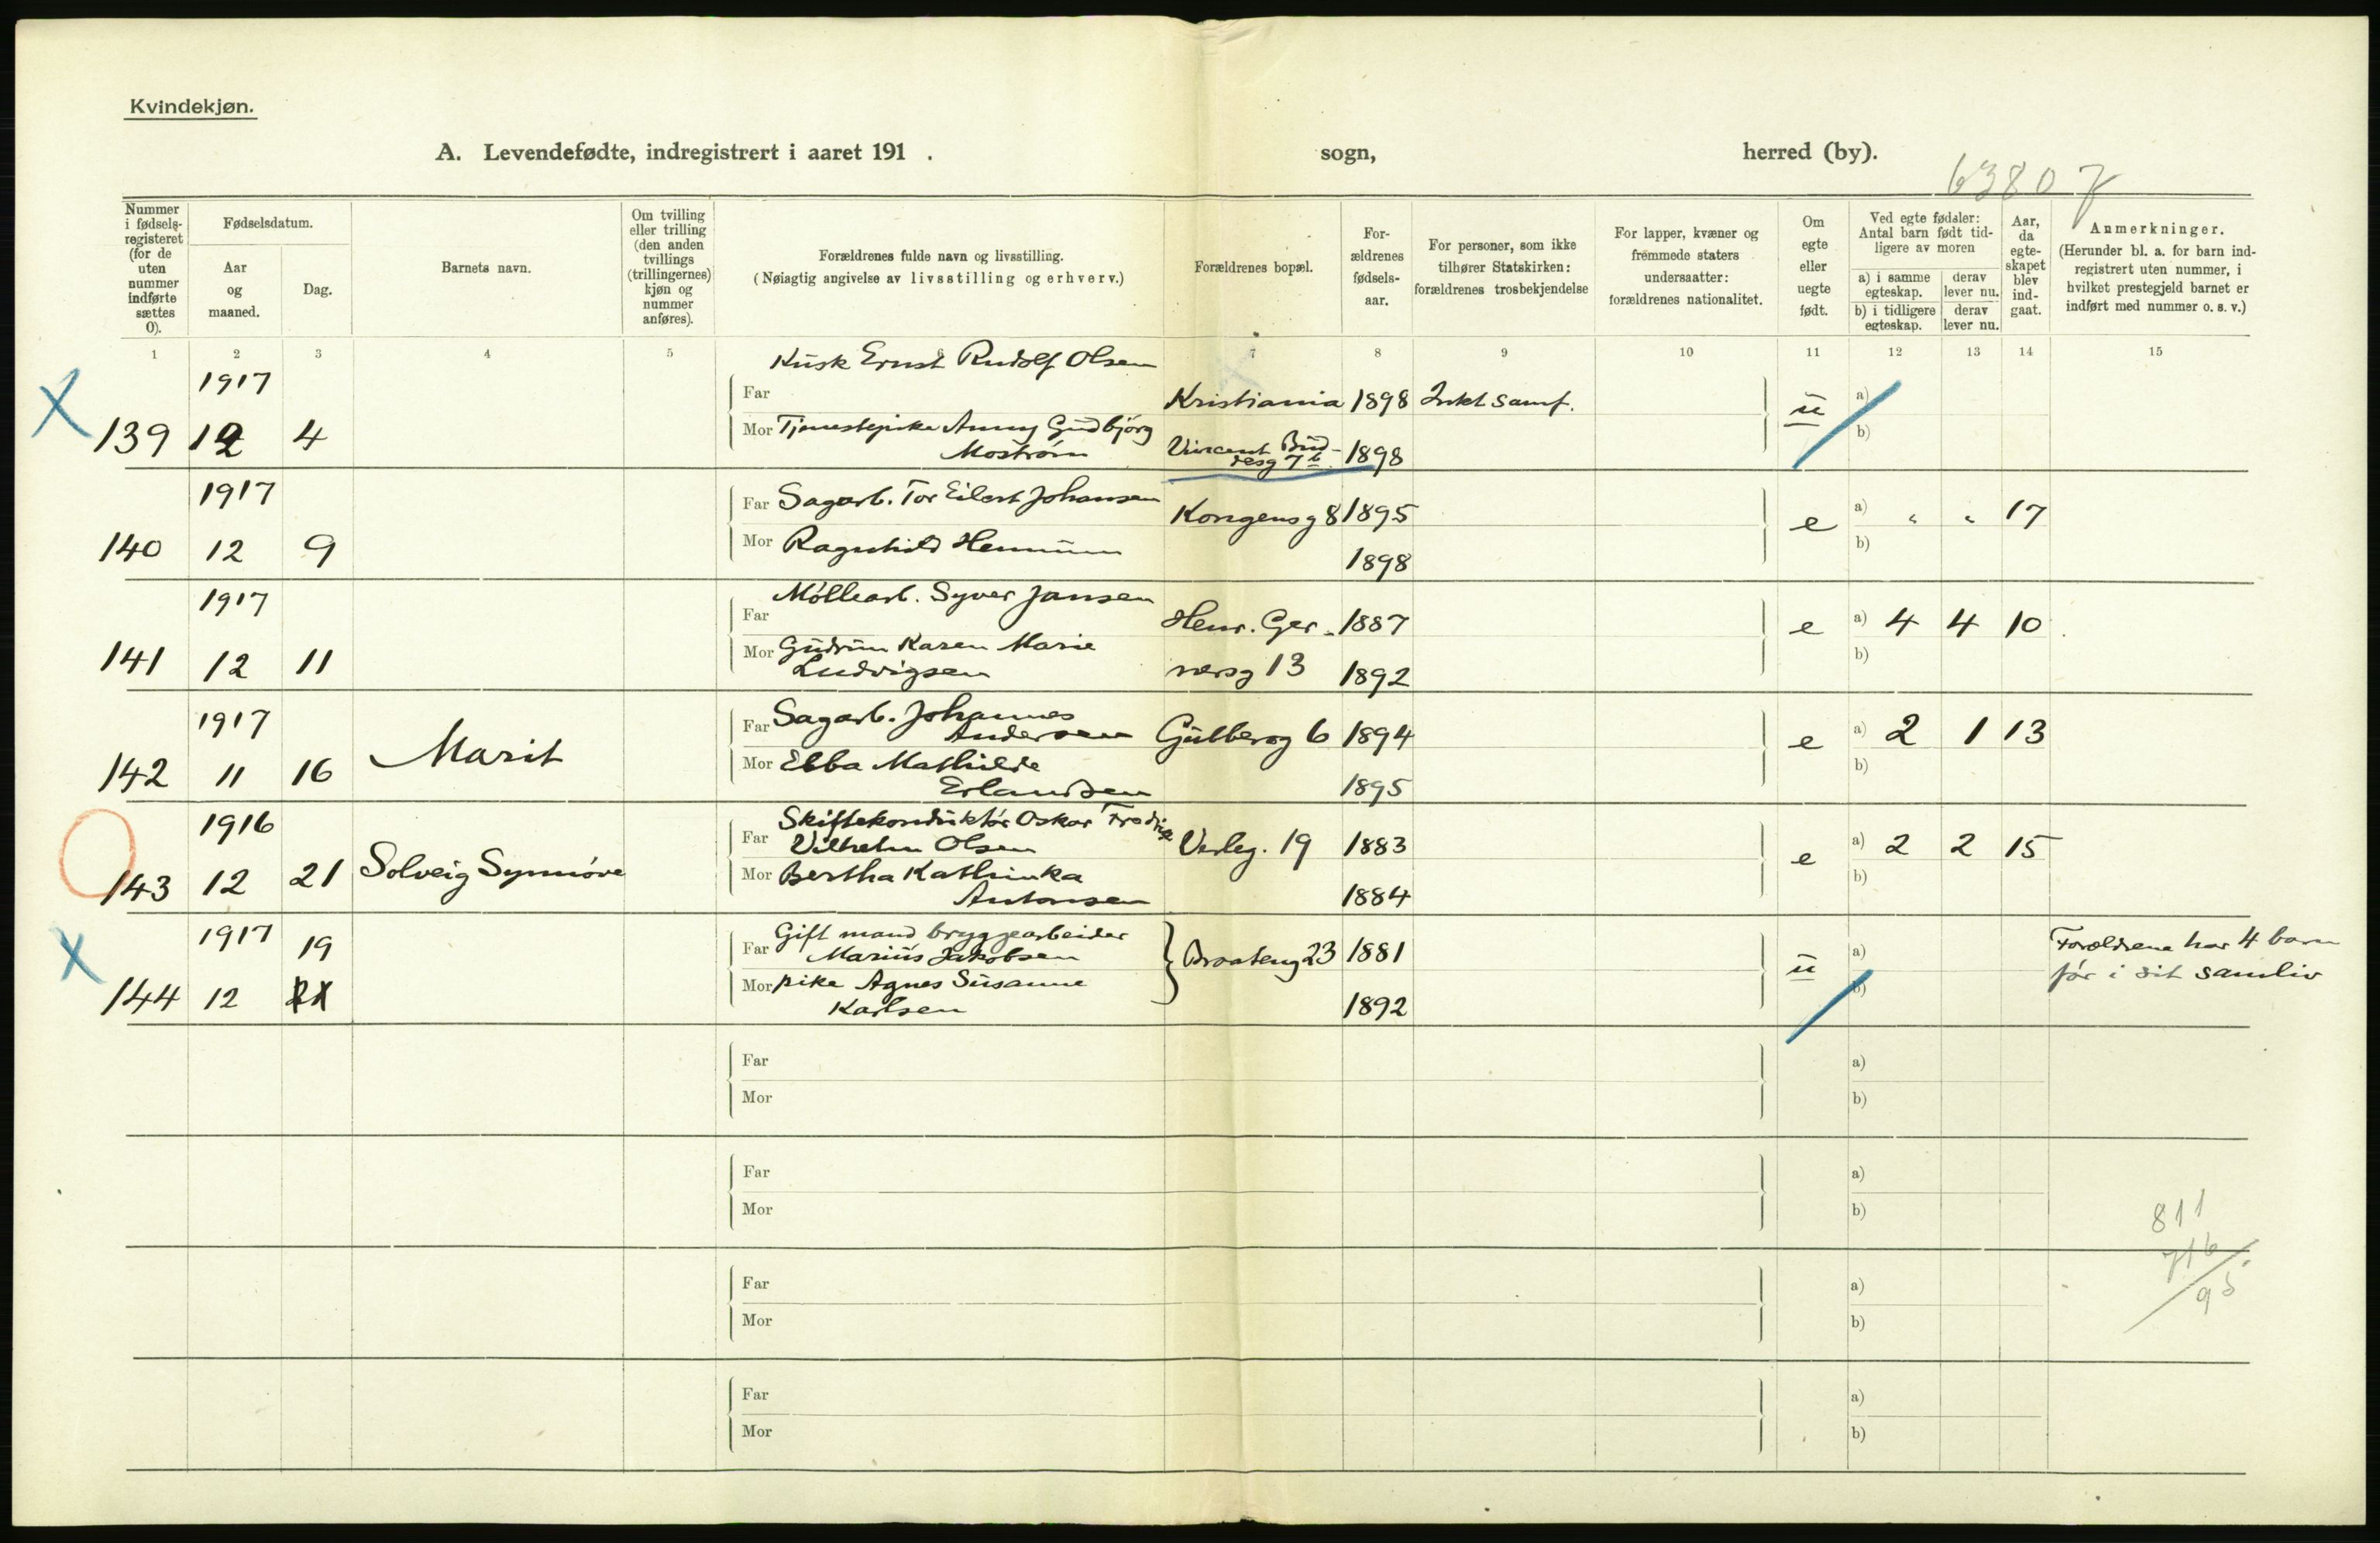 Kvindekjøn.
A. Levendefødte, indregistrert i aaret 191 . sogn, herred (by).
6380 7
Nummer i fødselsregisteret (for de uten nummer indførte sættes 0).
Fødselsdatum.
Aar og maaned.
Dag.
Barnets navn.
Om tvilling eller trilling (den anden tvillings (trillingernes) kjøn og nummer anføres).
Forældrenes fulde navn og livsstilling.
(Nøiagtig angivelse av livsstilling og erhverv.)
Forældrenes bopæl.
Forældrenes fødselsaar.
For personer, som ikke tilhører Statskirken: forældrenes trosbekjendelse
For lapper, kvæner og fremmede staters undersaatter: forældrenes nationalitet.
Om egte eller uegte født.
Ved egte fødsler: Antal barn født tidligere av moren
a) i samme egteskap. derav lever nu.
b) i tidligere egteskap. derav lever nu.
Aar, da egteskapet blev indgaat.
Anmerkninger.
(Herunder bl. a. for barn indregistrert uten nummer, i hvilket prestegjeld barnet er indført med nummer o. s. v.)
1 2 3 4 5 6 7 8 9 10 11 12 13 14 15
Kusk Ernst Rudolf Olsen
1917 Far Kristiania 1898 Inkt samf. u a)
139 12 4 Mor Tjenestepike Anny Gudbjörg b)
Moström Vincent Buddesg 7b 1898
1917 Far Sagarb. Tor Eilert Johansen Kongensg 8 1895 e a) " " 17
140 12 9 Mor Ragnhild Hennum 1898 b)
1917 Møllearb. Syver Jansen
Far Henr. Ger- 1887 e a) 4 4 10
141 12 11 Mor Gudrun Karen Marie b)
Ludvigsen nersg 13 1892
1917 Far Sagarb. Johannes
Andersen Gulbergg 6 1894 e a) 2 1 13
142 11 16 Marit Mor Ebba Mathilde b)
Erlandsen 1895
1916 Skiftekonduktør Oskar Fredrik
Far Vilhelm Olsen Verleg. 19 1883 e a) 2 2 15
143 12 21 Solveig Synnöve Mor Bertha Kathinka b)
Antonsen 1884
1917 19 Gift mand bryggearbeider Forældrene har 4 barn
Far Marius Jakobsen Braateng 23 1881 u a) før i sit samliv
144 12 21 Mor pike Agnes Susanne b)
Karlsen 1892
Far a)
Mor b)
Far a)
Mor b)
811
716
95
Far a)
Mor b)
Far a)
Mor b)